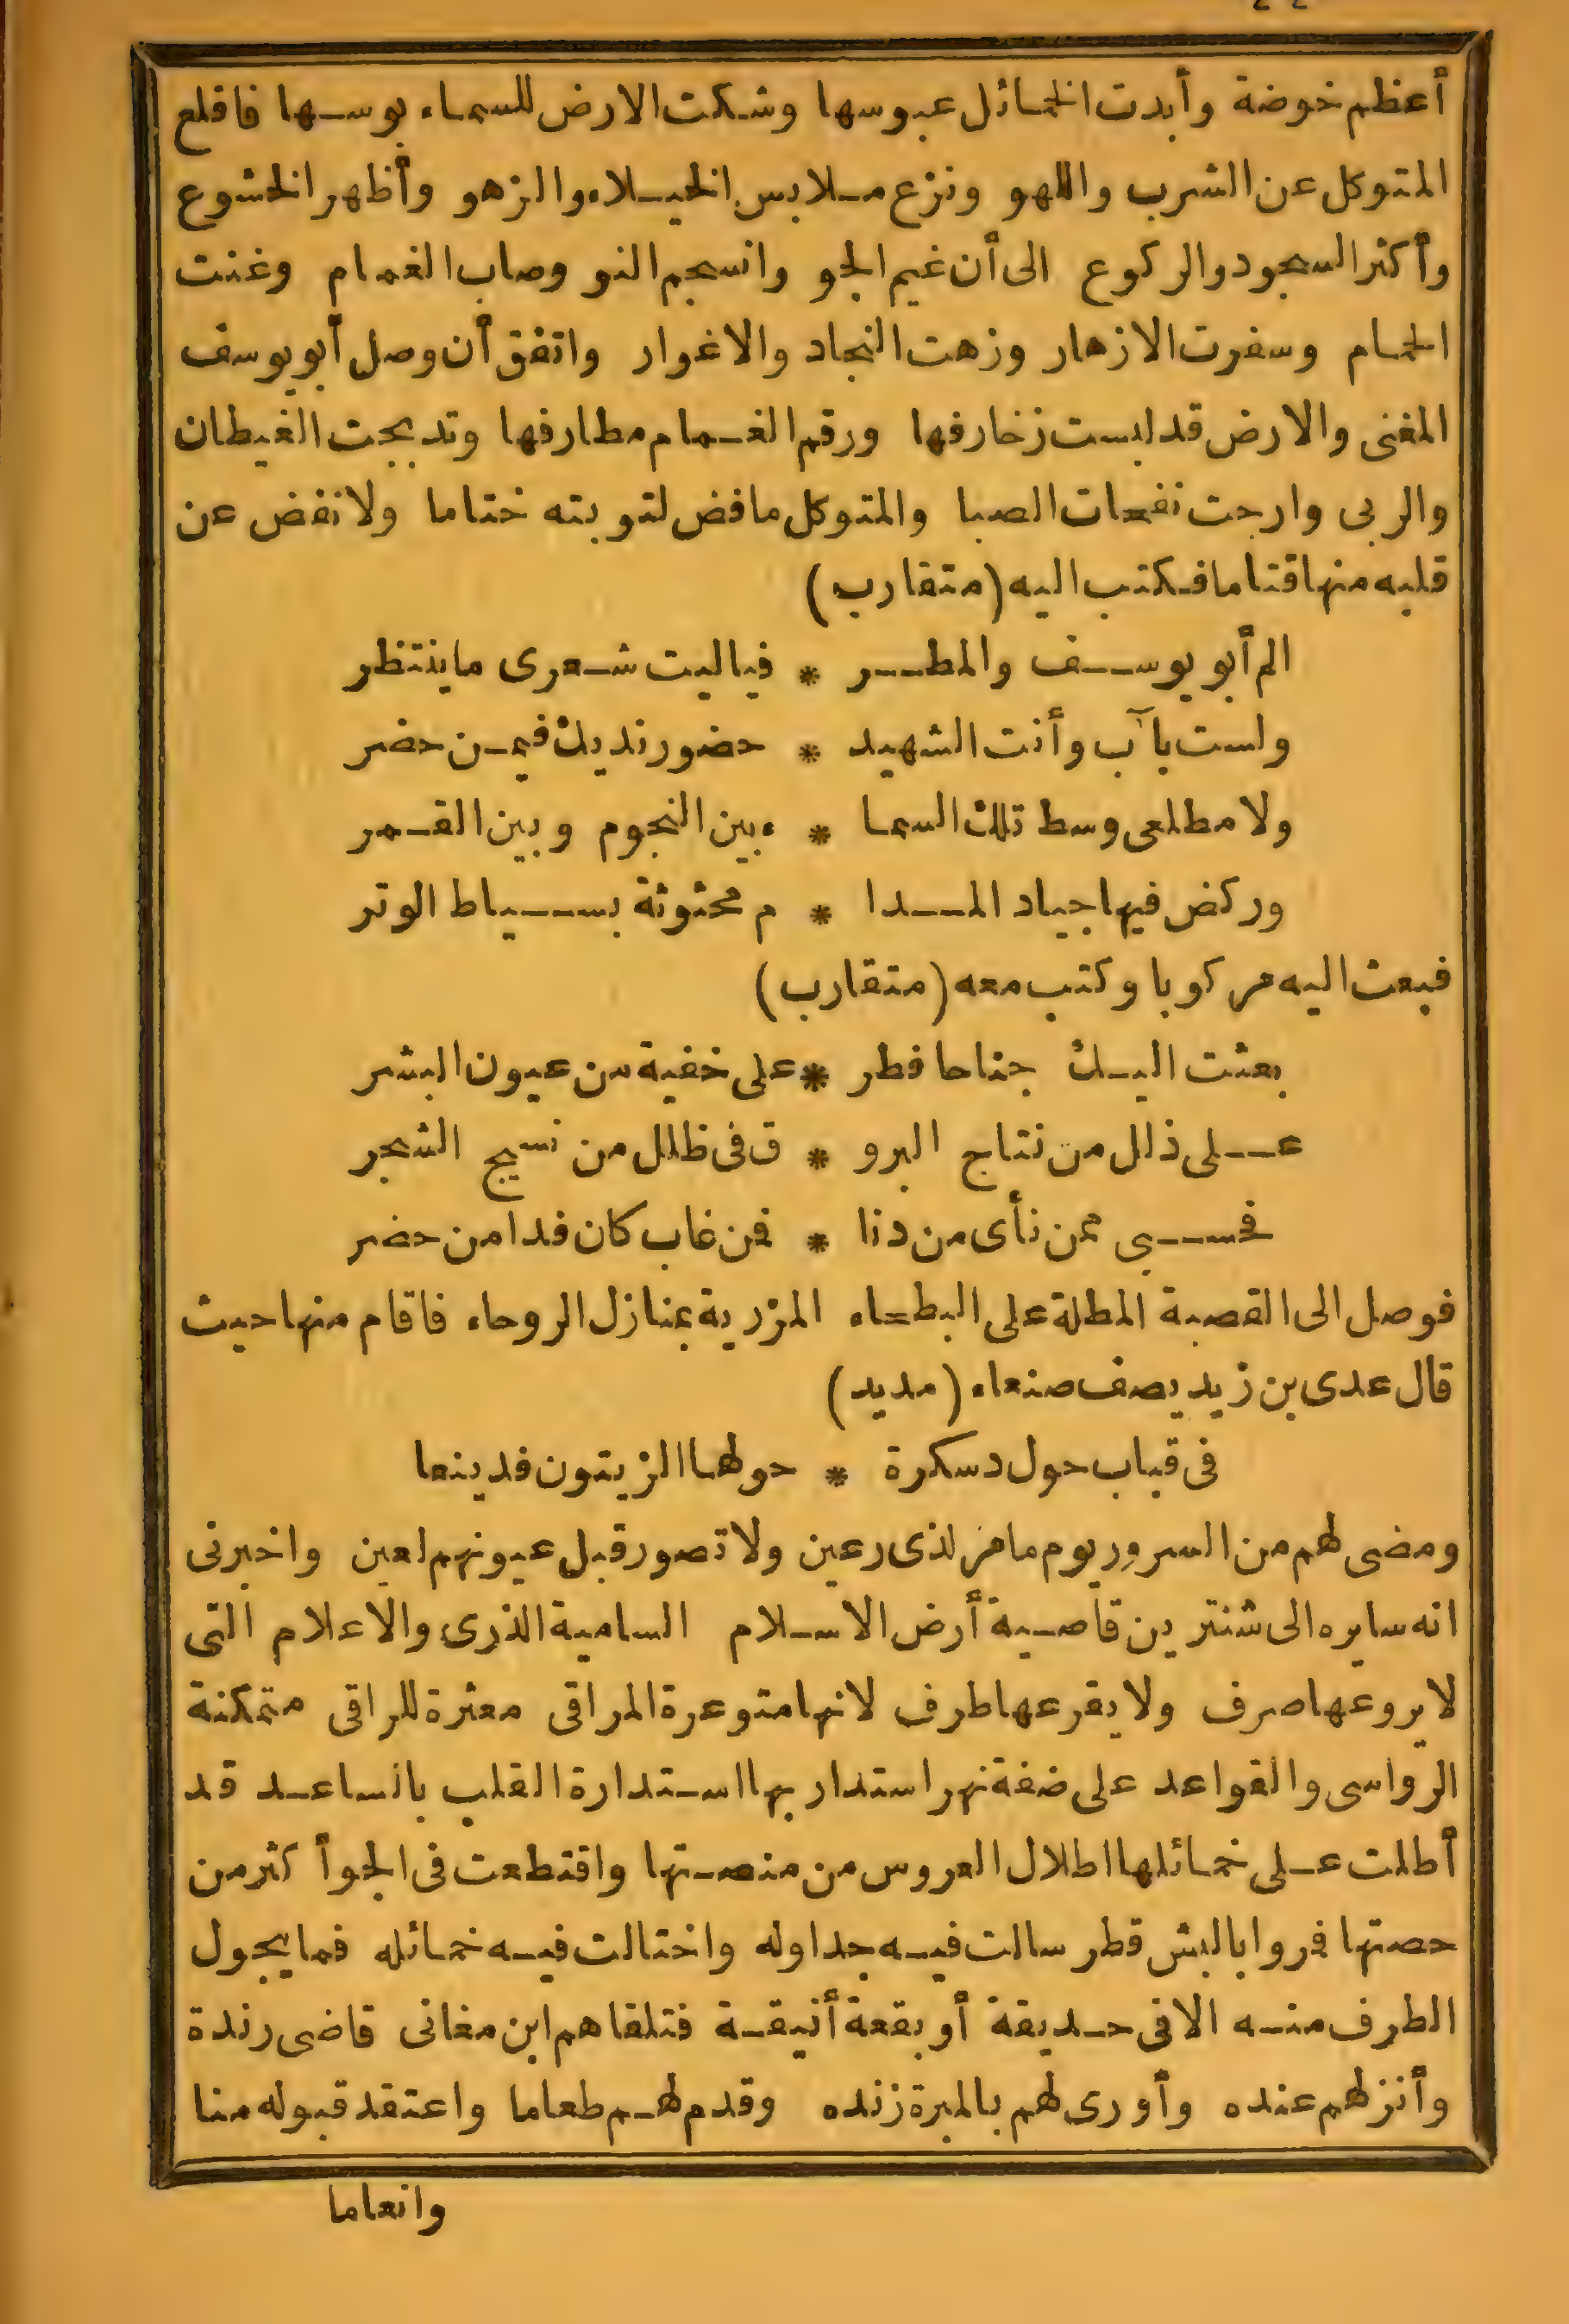 أعظم خوضة وأبدت الخمائل عبوسها وشكت الارض للسماء بوسها فاقلع
المتوكل عن الشرب واللهو ونزع ملابس الخيلاء والزهو وأظهر الخشوع
وأكثر السجود والركوع الى أن غيم الجو وانسجم النو وصاب الغمام وغنت
الحمام وسفرت الازهار وزهت النجاد والاغوار واتفق أن وصل أبو يوسف
المغنى والارض قد لبست زخارفها ورقم الغمام مطارفها وتدبجت الغيطان
والربى وارجت نفحات الصبا والمتوكل ما فض لتوبته ختاما ولا نفض عن
قلبه منها قتاما فكتب اليه (متقارب)
الم أبو يوسف والمطر * فياليت شعرى ما ينتظر
ولست بآب وأنت الشهيد * حضور نديك فيمن حضر
ولا مطلعى وسط تلك السما * ء بين النجوم وبين القمر
وركض فيها جياد المدا * م محثوثة بسياط الوتر
فبعث اليه مركوبا وكتب معه (متقارب)
بعثت اليك جناحا فطر * على خفية من عيون البشر
على ذلل من نتاج البرو * ق فى ظلل من نسيج الشجر
فحسبى ممن نأى من دنا * فمن غاب كان فدا من حضر
فوصل الى القصبة المطلة على البطحاء المزرية بمنازل الروحاء فاقام منها حيث
قال عدى بن زيد يصف صنعاء (مديد)
فى قباب حول دسكرة * حولها الزيتون قد ينعا
ومضى لهم من السرور يوم ما مر لذى رعين ولا تصور قبل عيونهم لعين واخبرنى
انه سايره الى شنترين قاصية أرض الاسلام السامية الذرى والاعلام التى
لا يروعها صرف ولا يقرعها طرف لانها متوعرة المراقى معثرة للراقى متمكنة
الرواسى والقواعد على ضفة نهر استدار بها استدارة القلب بالساعد قد
أطلت على خمائلها اطلال العروس من منصتها واقتطعت فى الجو أكثر من
حصتها فمروا بالبش قطر سالت فيه جداوله واختالت فيه خمائله فما يجول
الطرف منه الا فى حديقة أو بقعة أنيقة فتلقاهم ابن مغانى قاضى رندة
وأنزلهم عنده وأورى لهم بالمبرة زنده وقدم لهم طعاما واعتقد قبوله منا
وانعاما